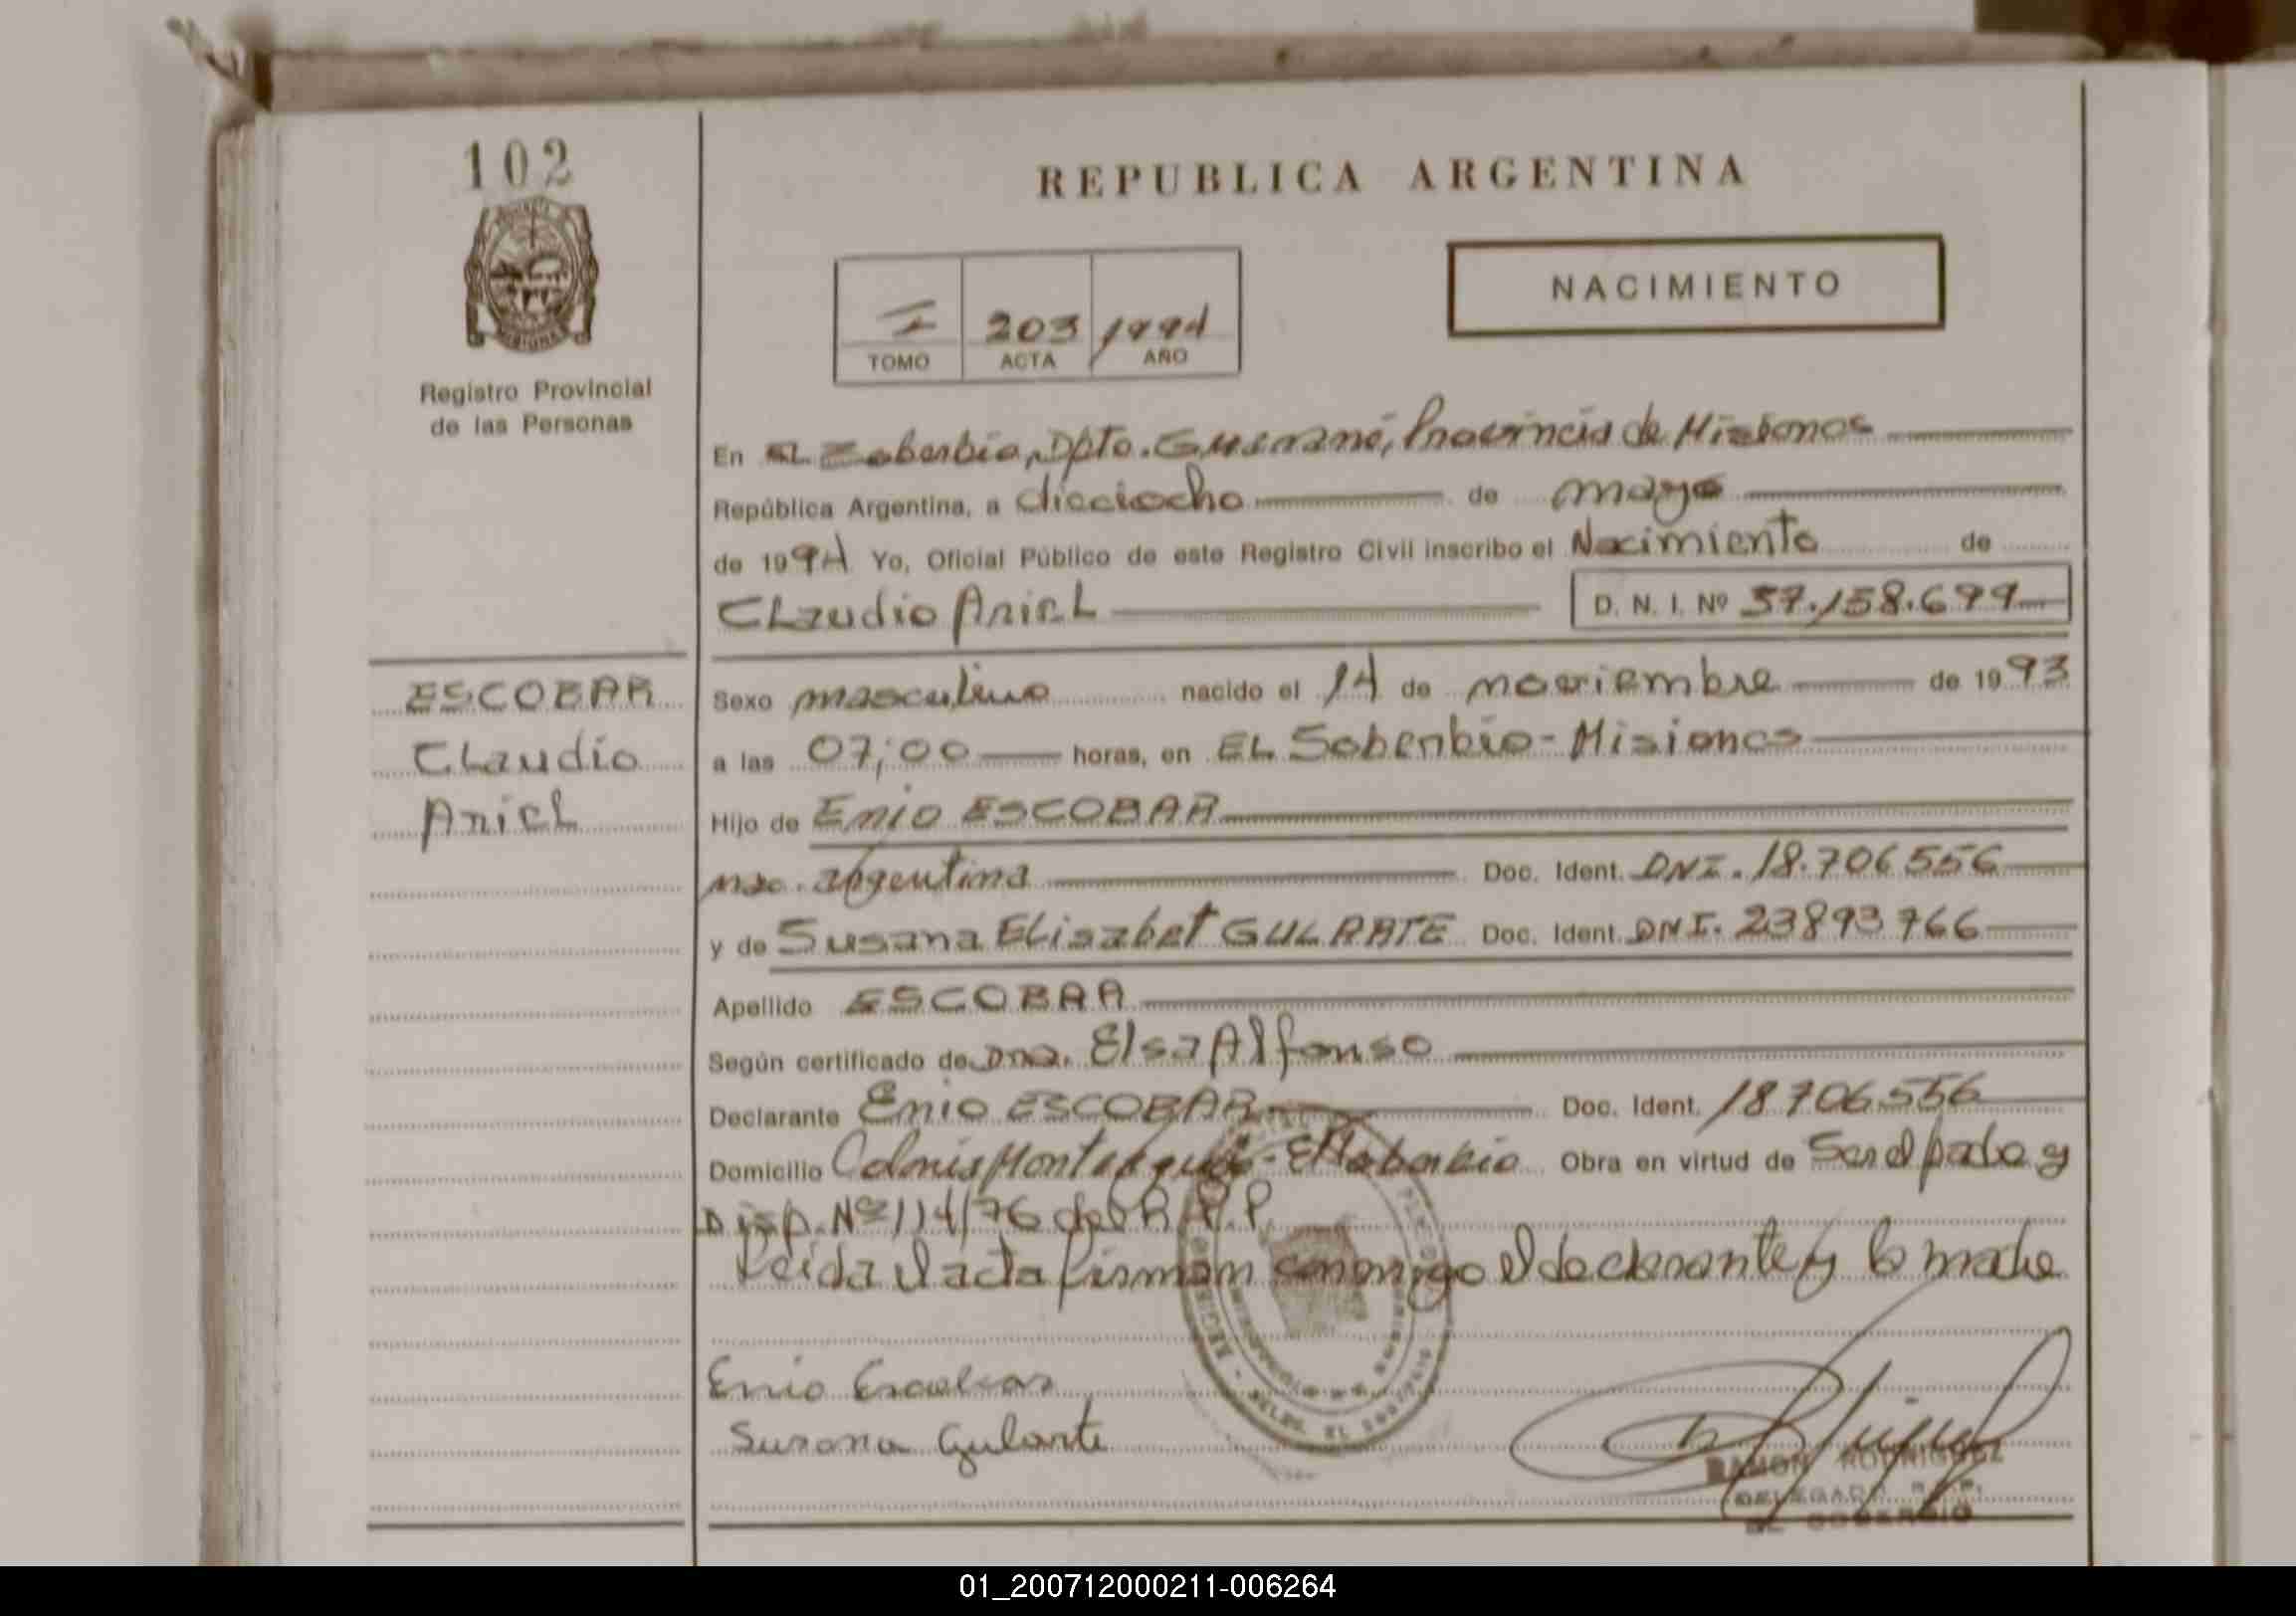 102
REPUBLICA ARGENTINA
NACIMIENTO
I 203 1994
TOMO ACTA AÑO
Registro Provincial
de las Personas
En EL Soberbio, Dpto. Guarani, Provincia de Misiones
República Argentina, a dieciocho de mayo
de 1994 Yo, Oficial Público de este Registro Civil inscribo el Nacimiento de
Claudio Ariel D. N. I. Nº 37.158.699
ESCOBAR
Claudio
Ariel
Sexo masculino nacido el 14 de noviembre de 1993
a las 07;00 horas, en EL Soberbio - Misiones
Hijo de Enio ESCOBAR
nac. argentina Doc. Ident. DNI. 18.706556
y de Susana Elisabet GULARTE Doc. Ident. DNI. 23893766
Apellido ESCOBAR
Según certificado de Dna. Elsa Alfonso
Declarante Enio ESCOBAR Doc. Ident. 18706556
Domicilio Colonia Monteagudo - El Soberbio Obra en virtud de Ser el padre y
Disp. Nº 114/76 del R.P.P.
Leida el acta firman conmigo el declarante y la madre
Enio Escobar
Susana Gularte
RAMON RODRIGUEZ
DELEGADO R.P.P.
EL SOBERBIO
01_200712000211-006264